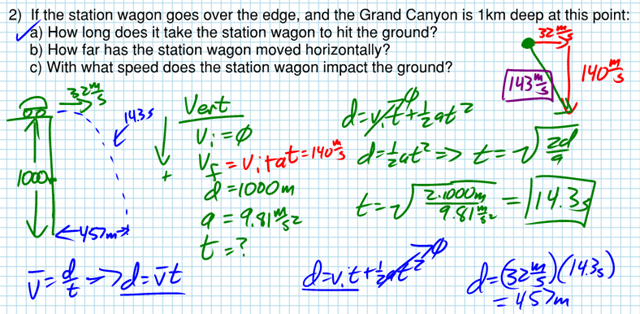 2) If the station wagon goes over the edge, and the Grand Canyon is 1km deep at this point:
a) How long does it take the station wagon to hit the ground?
b) How far has the station wagon moved horizontally?
c) With what speed does the station wagon impact the ground?
32 m/s
140 m/s
143 m/s
32 m/s
14.3s
1000m
457m
+
Vert
vᵢ = ∅
v_f = vᵢ + at = 140 m/s
d = 1000m
a = 9.81 m/s²
t = ?
d = vᵢt + ½at²
d = ½at² => t = √(2d/a)
t = √(2·1000m / 9.81 m/s²) = 14.3s
v̄ = d/t => d = v̄t
d = vᵢt + ½at² ∅
d = (32 m/s)(14.3s)
= 457m